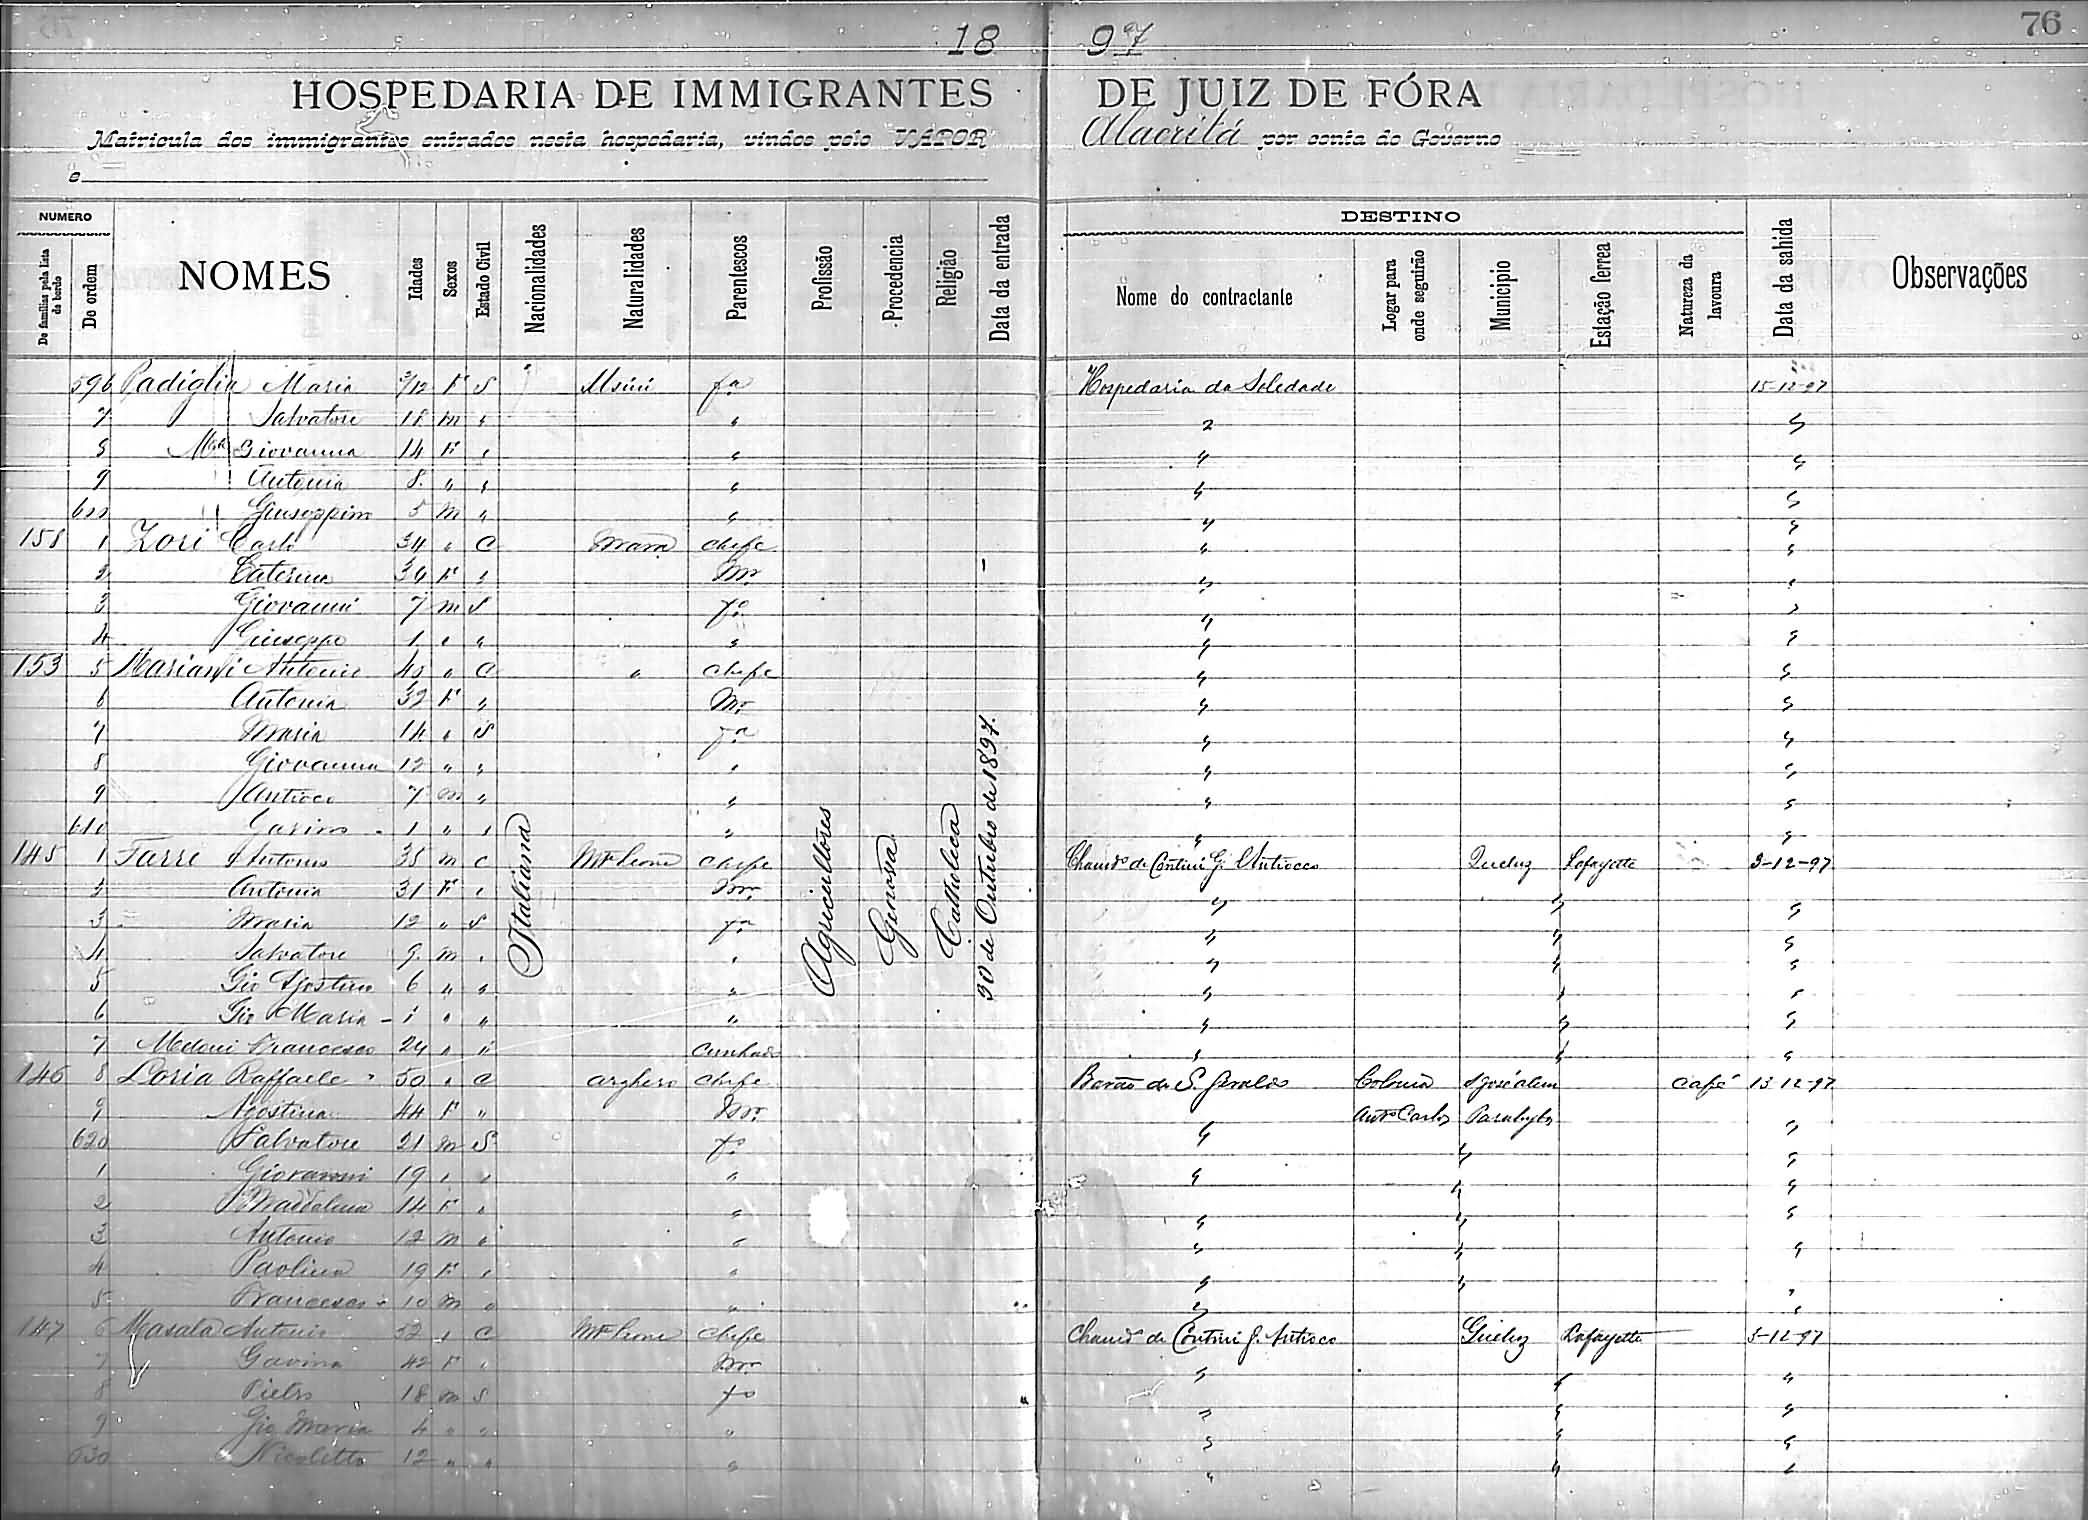 76
18 97
HOSPEDARIA DE IMMIGRANTES DE JUIZ DE FÓRA
Matricula dos immigrantes entrados nesta hospedaria, vindos pelo VAPOR Alacritá por conta do Governo
e
NUMERO
De familias pela lista de bordo
De ordem
NOMES
Idades
Sexos
Estado Civil
Nacionalidades
Naturalidades
Parentescos
Profissão
Procedencia
Religião
Data da entrada
DESTINO
Nome do contractante
Logar para onde seguirão
Municipio
Estação ferrea
Natureza da lavoura
Data da sahida
Observações
Italiana
Agricultores
Genova
Catholica
30 de Outubro de 1897.
596 Padiglia Maria 3/12 F S Usini fa Hospedaria da Soledade 15-12-97
7 Salvatore 18 m " " " "
8 Giovanna 14 F " " " "
9 Antonia 8 " " " " "
600 Giuseppim 5 m " " " "
158 1 Zori Carlo 34 " C chefe " "
2 Caterina 34 F " Mr " "
3 Giovanni 7 m S fo " "
4 Giuseppe 1 " " " " "
153 5 Mariani Antonio 40 " C " chefe " "
6 Antonia 32 F " Mr " "
7 Maria 14 " S fa " "
8 Giovanna 12 " " " " "
9 Antioco 7 m " " " "
610 Gavino 1 " " " " "
145 1 Farre Antonio 35 m C Mte leone chefe Chamdo de Contini G. Antiocco Queluz Lafayette 3-12-97
2 Antonia 31 F " Mr " " "
3 Maria 12 " S fa " " "
4 Salvatore 9 m " " " " "
5 Gio Agostino 6 " " " " " "
6 Gio Maria 1 " " " " " "
7 Meloni Francesco 24 " " cunhado " " "
146 8 Loria Raffaele 50 " C Arghero chefe Barão de S. Geraldo Colonia S José alem café 13 12-97
9 Agostina 44 F " Mr " Anto Carlos Parahyba "
620 Salvatore 21 m S fo " " "
1 Giovanni 19 " " " " " "
2 Maddalena 14 F " " " " "
3 Antonio 12 m " " " " "
4 Paolina 19 F " " " " "
5 Francesco 10 m " " " "
147 6 Masala Antonio 52 " C Mte leone chefe Chamdo de Contini G. Antioco Queluz Lafayette 3-12-97
7 Gavina 42 F " Mr " " "
8 Pietro 18 m S fo " " "
9 Gio Maria 4 " " " " " "
630 Nicoletta 12 " " " " " "